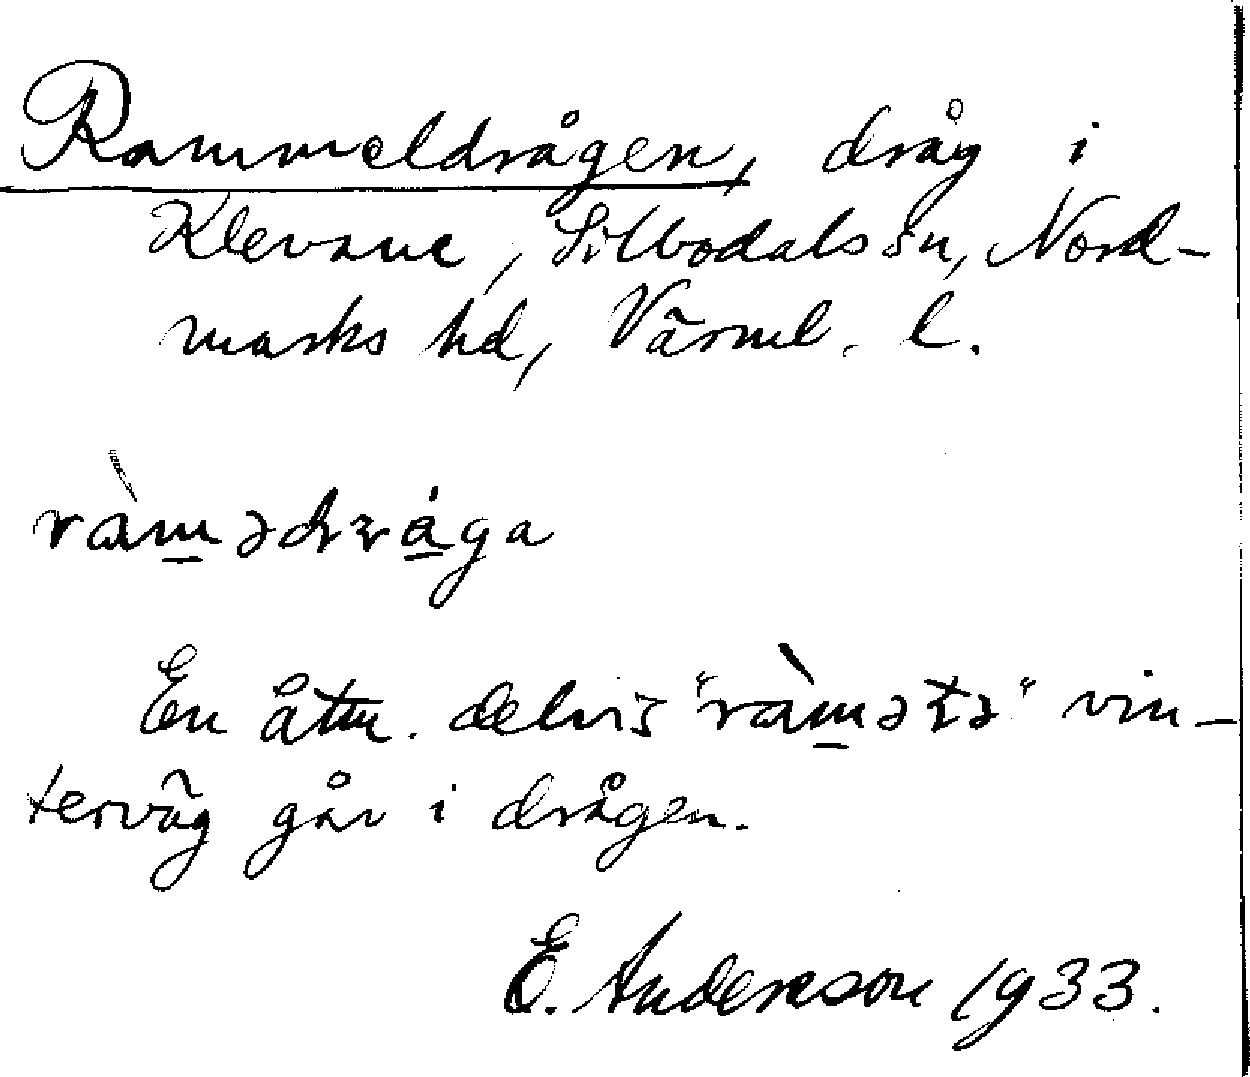 Rammeldrågen, dråg i
Klevane, Silbodals sn, Nord-
marks hd, Värml. l.
ràm̲ədrȧ̲ga
En åtm. delvis "ràm̲ətə" vin-
terväg går i drågen.
E. Anderson 1933.